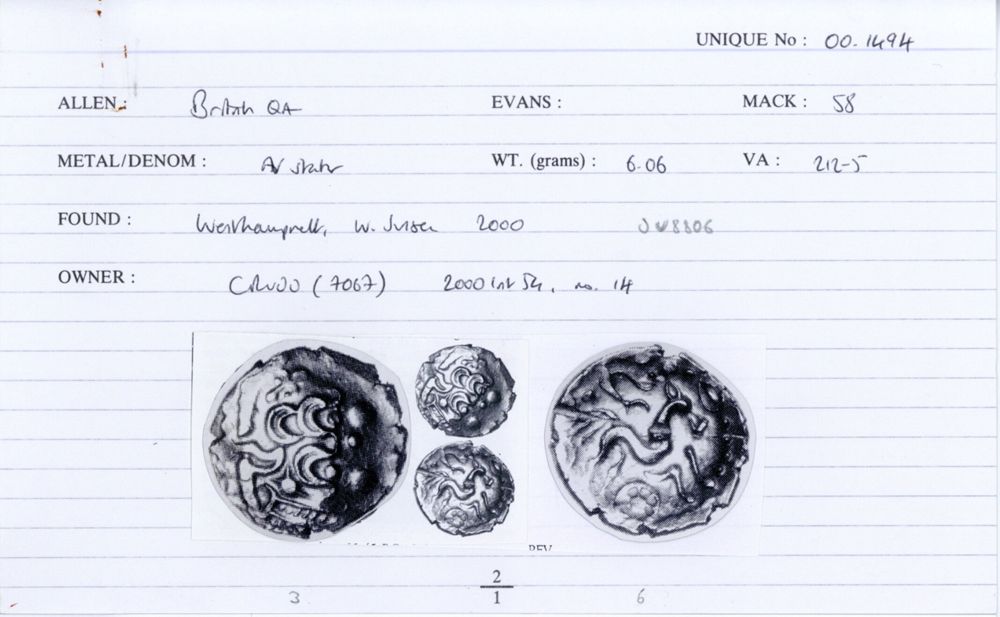 UNIQUE No : 00.1494
ALLEN : British QA EVANS : MACK : 58
METAL/DENOM : AV stater WT. (grams) : 6.06 VA : 212-5
FOUND : Westhampnett, W. Sussex 2000 SU8806
OWNER : CR (7067) 2000 54, no. 14
REV
2
3 1 6